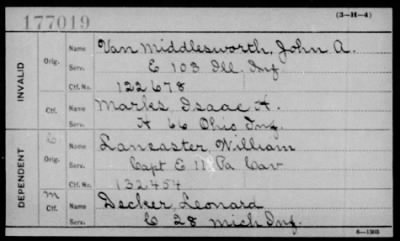 177019
(3-H-4)
INVALID
Orig.
Name Van Middlesworth, John A.
Serv. E 103 Ill. Inf
Ctf. No. 122678
Ctf.
Name Marks, Isaac A.
Serv. A 66 Ohio Inf.
DEPENDENT
C
Orig.
Name Lancaster, William
Serv. Capt E 11 Pa Cav
Ctf. No. 132454
m
Ctf.
Name Decker, Leonard
Serv. C 28 Mich Inf.